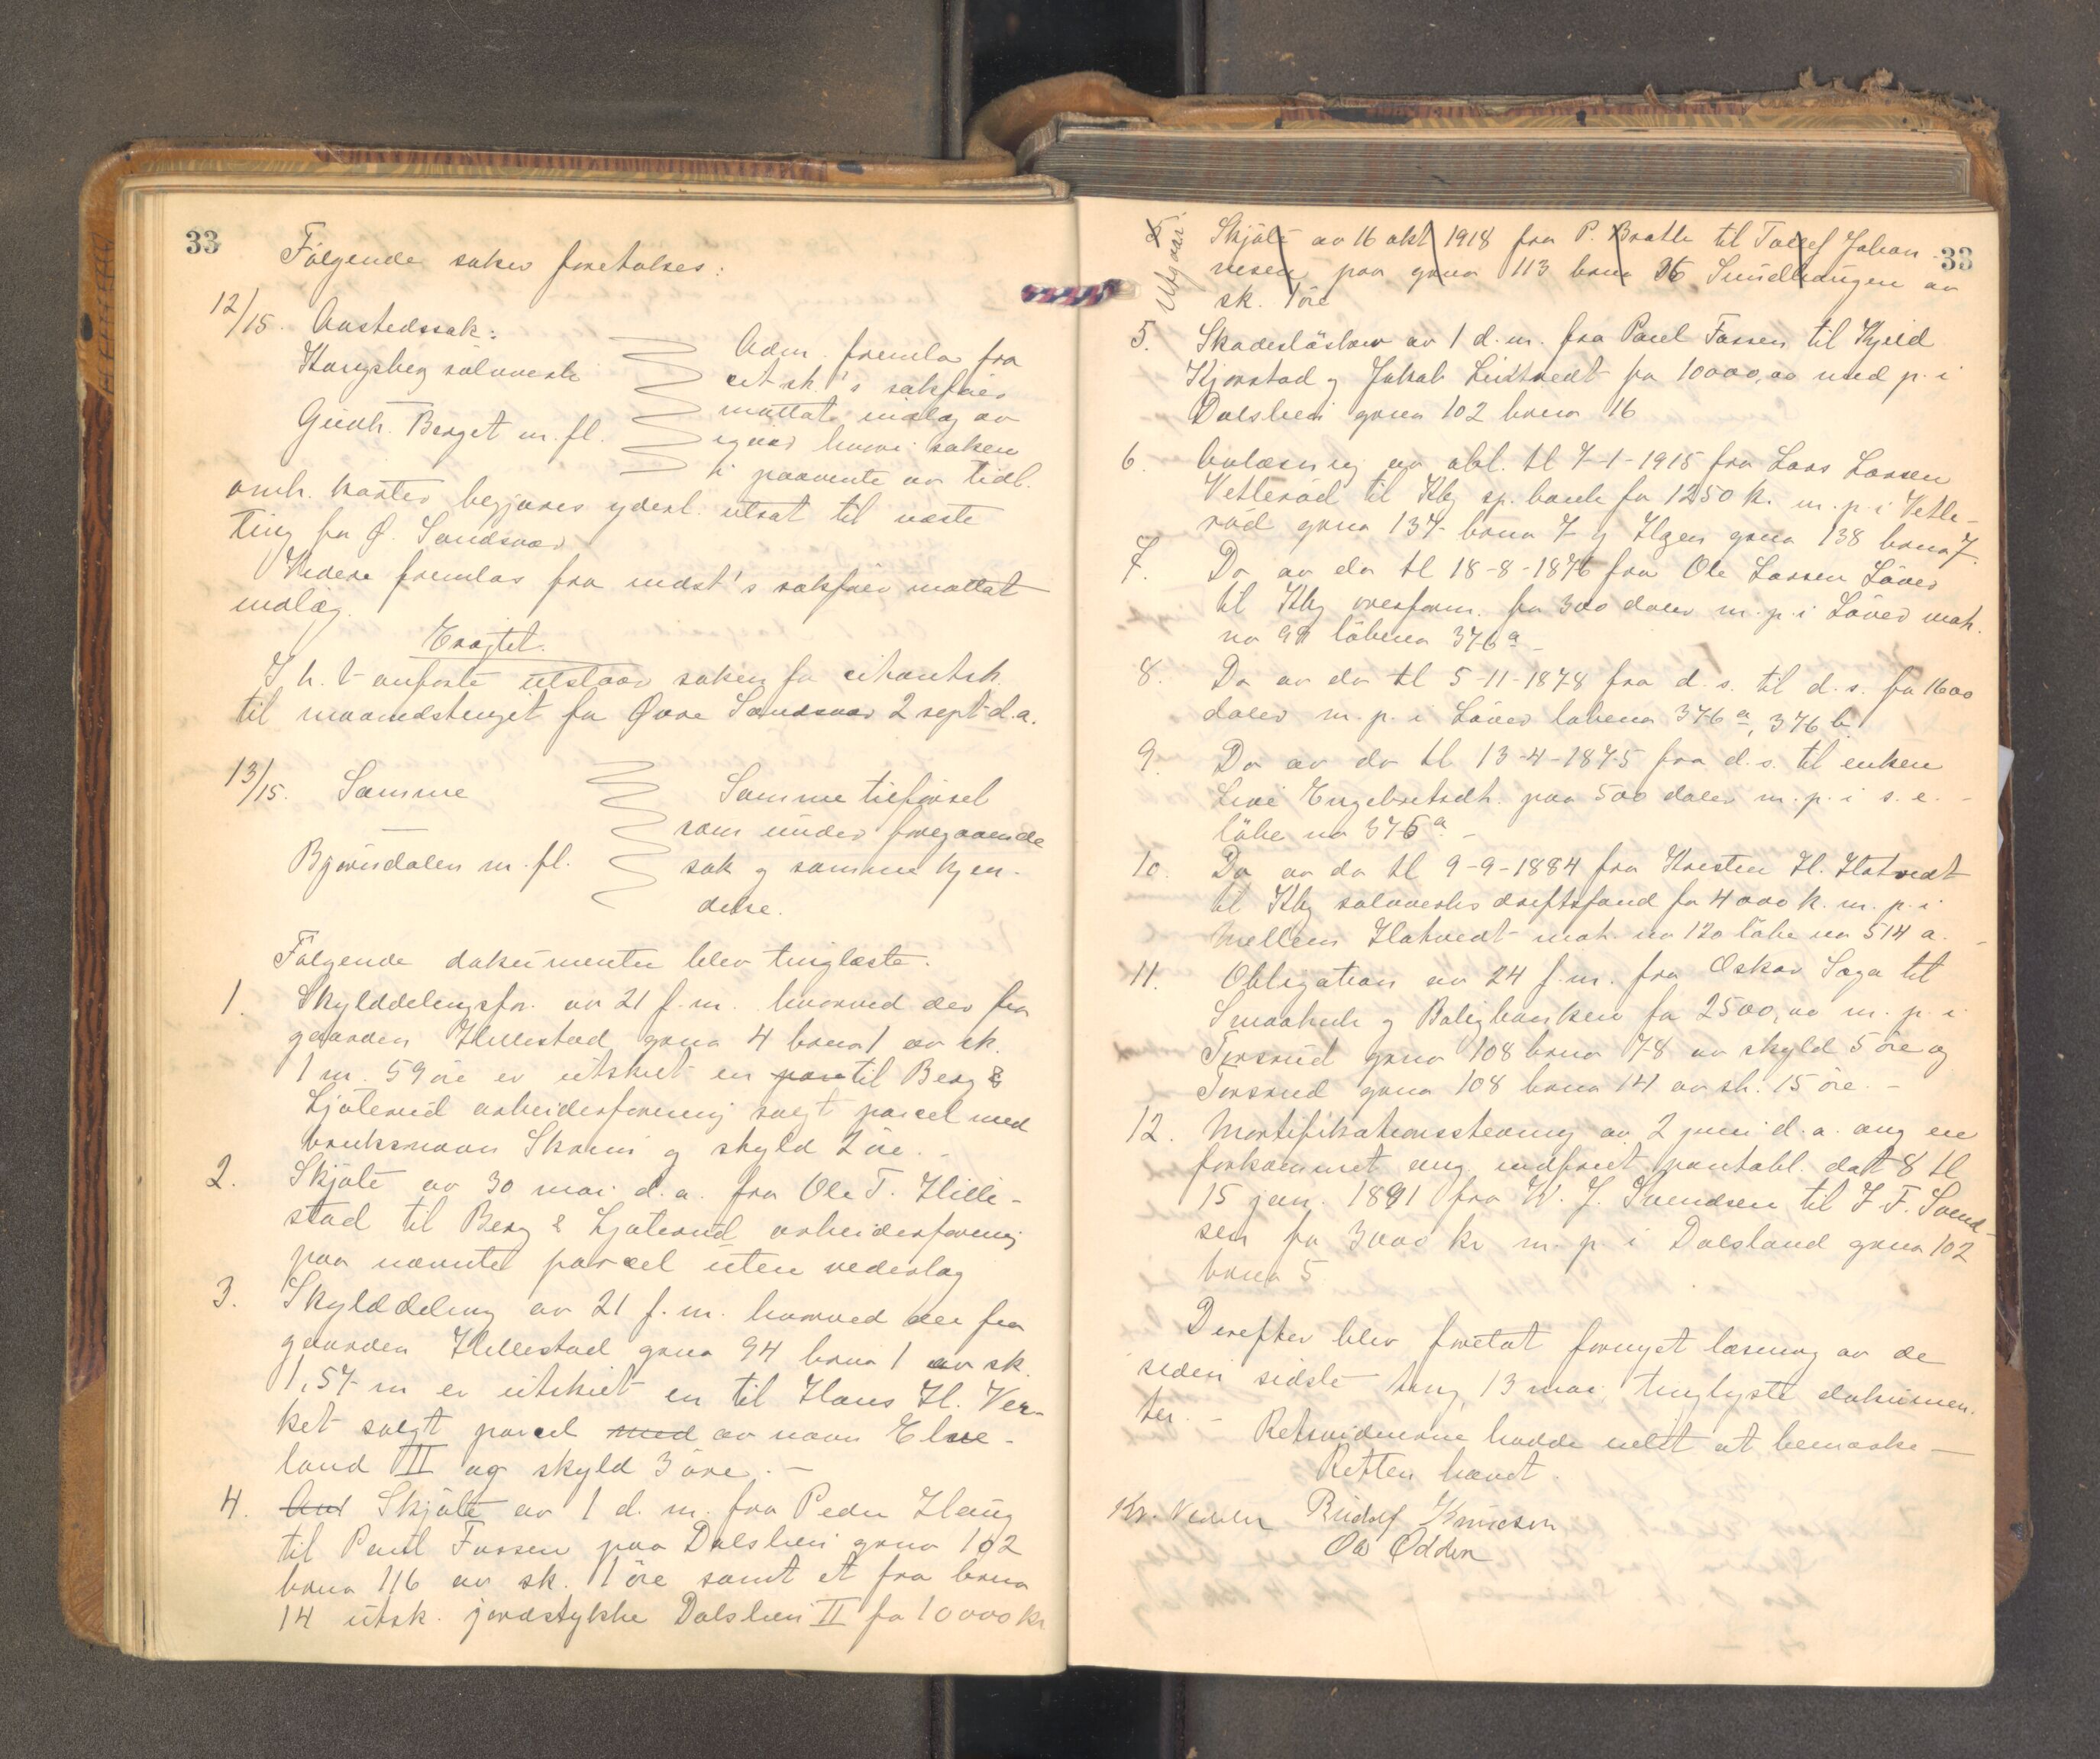 33
Følgende saker foretokes:
12/15. Aastedssak:
Kongsberg sølvverk
Gudb. Berget m. fl.
Adm. fremla fra
citsk's sakfører
mottat indlæg av
hvori saken
i paavente av tidl.
omh. karter begjæres yderl. utsat til næste
ting for Ø. Sandsvær
Videre fremlas fra indst's sakfører mottat
indlæg.
Eragtet.
I h. t. anførte utstaar saken for citantsk.
til maanedstinget for Øvre Sandsvær 2 sept. d.a.
13/15. Samme
Bjørndalen m. fl.
Samme tilførsel
som under foregaaende
sak og samme kjen-
delse.
Følgende dokumenter blev tinglæste.
1. Skylddelingsfor. av 21 f. m. hvorved der fra
gaarden Hillestad gno 4 bno 1 av sk.
1 m. 59 øre er utskilt en til Berg &
Ljøterud arbeiderforening solgt parcel med
bruksnavn Skoleim og skyld 2 øre. -
2. Skjøte av 30 mai d. a. fra Ole T. Hille-
stad til Berg & Ljøterud arbeiderforening
paa nævnte parcel uten vederlag
3. Skylddeling av 21 f. m. hvorved der fra
gaarden Hillestad gno 94 bno 1 av sk.
1,57 m er utskilt en til Hans H. Ver-
ket solgt parcel med av navn Elve-
land II og skyld 3 øre. -
4. Skjøte av 1 d. m. fra Peder Haug
til Paul Fossen paa Dalsheim gno 102
bno 116 av sk. 1 øre samt et fra bno
14 utsk. jordstykke Dalsheim II for 10000 kr
33
Utgaar
5. Skjøte av 16 okt 1918 fra P. Bratli til Tollef Johan-
nesen paa gno 113 bno 26 Sundhaugen av
sk. 1 øre
5. Skadesløsbrev av 1 d. m. fra Paul Fossen til Kjeld
Kjørstad og Jakob Liktvedt for 10000,00 med p. i
Dalsheim gno 102 bno 16
6. Avlæsning av obl. tl 7-1-1915 fra Lars Larsen
Vetlerød til Kbg sp. bank for 1250 k. m. p. i Vetle-
rød gno 137 bno 7 og Hagen gno 138 bno 7.
7. Do av do tl 18-8-1876 fra Ole Larsen Løver
til Kbg overform. for 300 daler m. p. i Løver matr.
no 99 løbeno 376 a -
8. Do av do tl 5-11-1878 fra d. s. til d. s. for 1600
daler m. p. i Løver løbeno 376 a, 376 b.
9. Do av do tl 13-4-1875 fra d. s. til enken
Live Engebretsdt. paa 500 daler m. p. i s. e. -
løbe no 376 a. -
10. Do av do tl 9-9-1884 fra Kresten H. Hatvedt
til Kbg sølvverks driftsfond for 4000 k. m. p. i
Mellem Hatvedt matr. no 120 løbe no 514 a. -
11. Obligation av 24 f. m. fra Oskar Saga til
Smaabruk og Boligbanken for 2500,00 m. p. i
Torsrud gno 108 bno 78 av skyld 5 øre og
Torsrud gno 108 bno 14 av sk. 15 øre. -
12. Mortifikationsstevning av 2 juni d. a. ang en
forkommet ang. indfriet pantobl. dat 8 tl
15 jan. 1891 fra W. J. Svendsen til J. F. Svend-
sen for 3000 kr m. p. i Dalsland gno 102
bno 5
Derefter blev foretat fornyet læsning av de
siden sidste ting, 13 mai, tinglyste dokumen-
ter. -
Retsvidnerne hadde intet at bemærke -
Retten hævet.
Kr. Rudolf Knudsen
Ole Odden